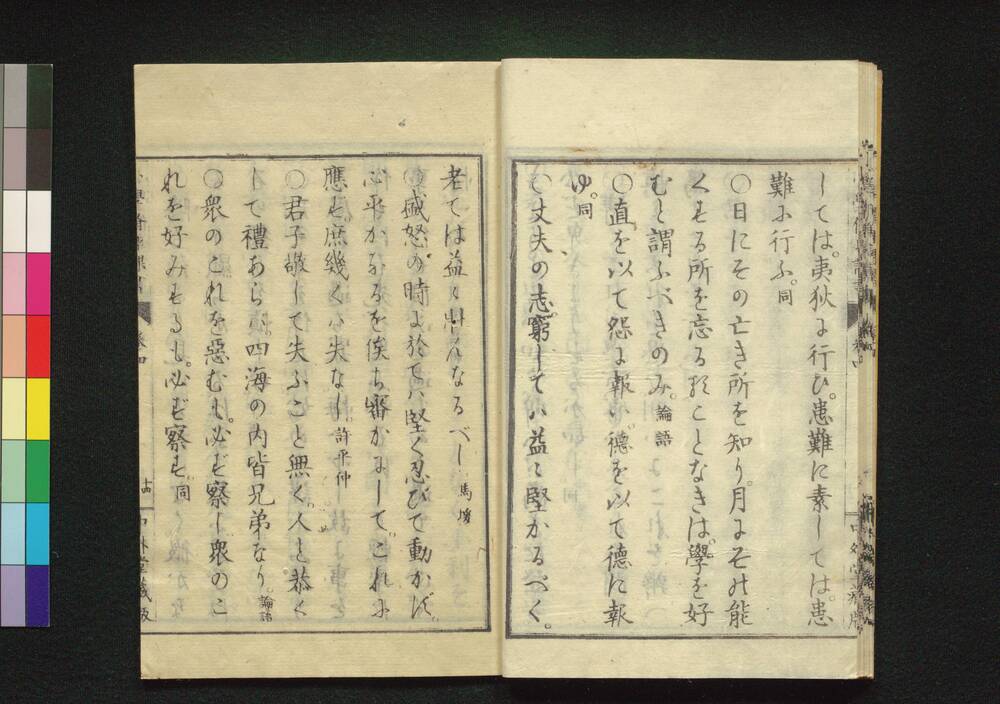 しては。夷狄に行ひ。患難に素しては。患
難に行ふ。同
○日にその亡き所を知り。月にその能
くする所を忘るることなきは。學を好
むと謂ふべきのみ。論語
○直を以て怨に報い。德を以て德に報
ゆ。同
○丈夫の志。窮しては益〻堅かるべく。
老ては益〻壯んなるべし 馬援
○盛怒の時に於ては堅く忍びて動かず。
心平かなるを俟ち審かにして。これに
應せ庶幾くは失なし。許平仲
○君子敬して失ふこと無く。人と恭く
して禮あらば。四海の内皆兄弟なり。論語
○衆のこれを惡むも。必ず察し衆のこ
れを好みするも。必ず察す。同
十四